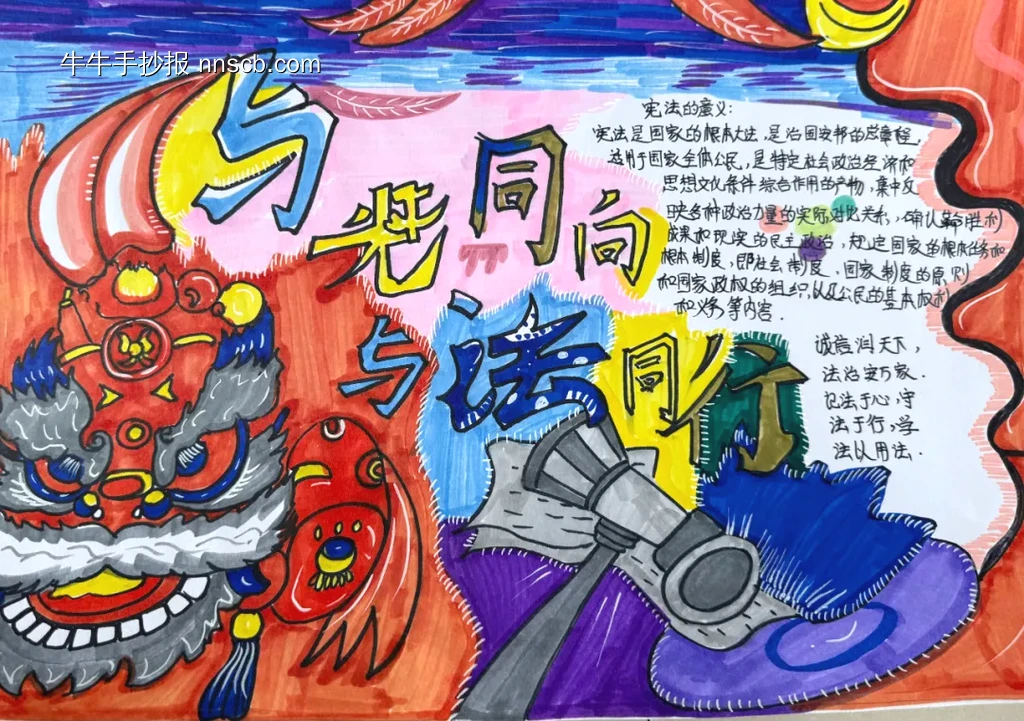 牛牛手抄报 nnscb.com
与光同向
与法同行
宪法的意义:
宪法是国家的根本大法,是治国安邦的总章程,
适用于国家全体公民,是特定社会政治经济和
思想文化条件综合作用的产物,集中反
映各种政治力量的实际对比关系,确认革命胜利
成果和现实的民主政治,规定国家的根本任务和
根本制度,即社会制度、国家制度的原则
和国家政权的组织,以及公民的基本权利
和义务等内容.
诚信润天下,
法治安万家.
记法于心,守
法于行,学
法以用法.